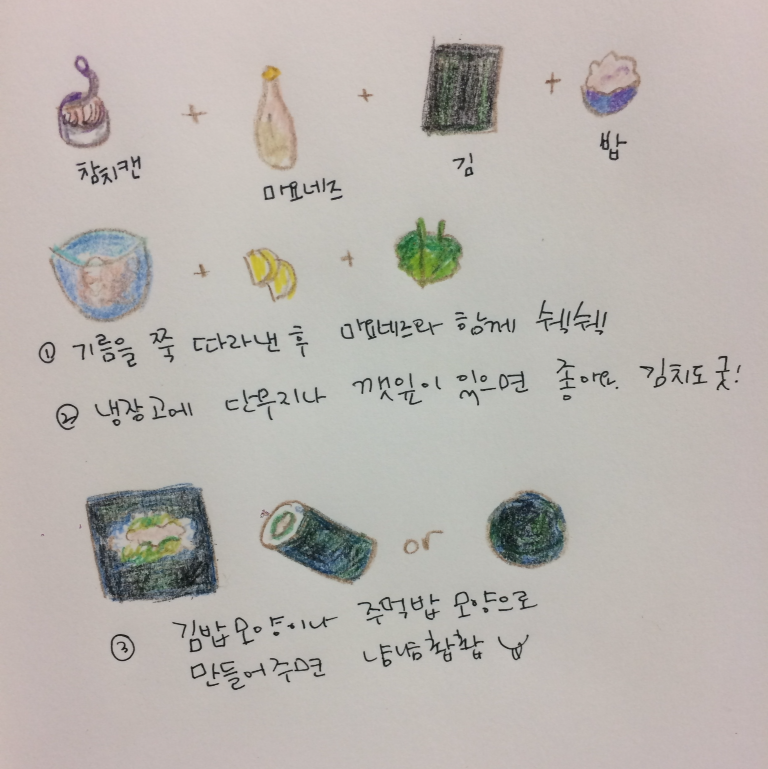 참치캔 + 마요네즈 + 김 + 밥
+ +
① 기름을 쭉 따라낸 후 마요네즈와 함께 쉑쉑
② 냉장고에 단무지나 깻잎이 있으면 좋아요. 김치도 굿!
or
③ 김밥모양이나 주먹밥 모양으로
만들어주면 냠냠촵촵